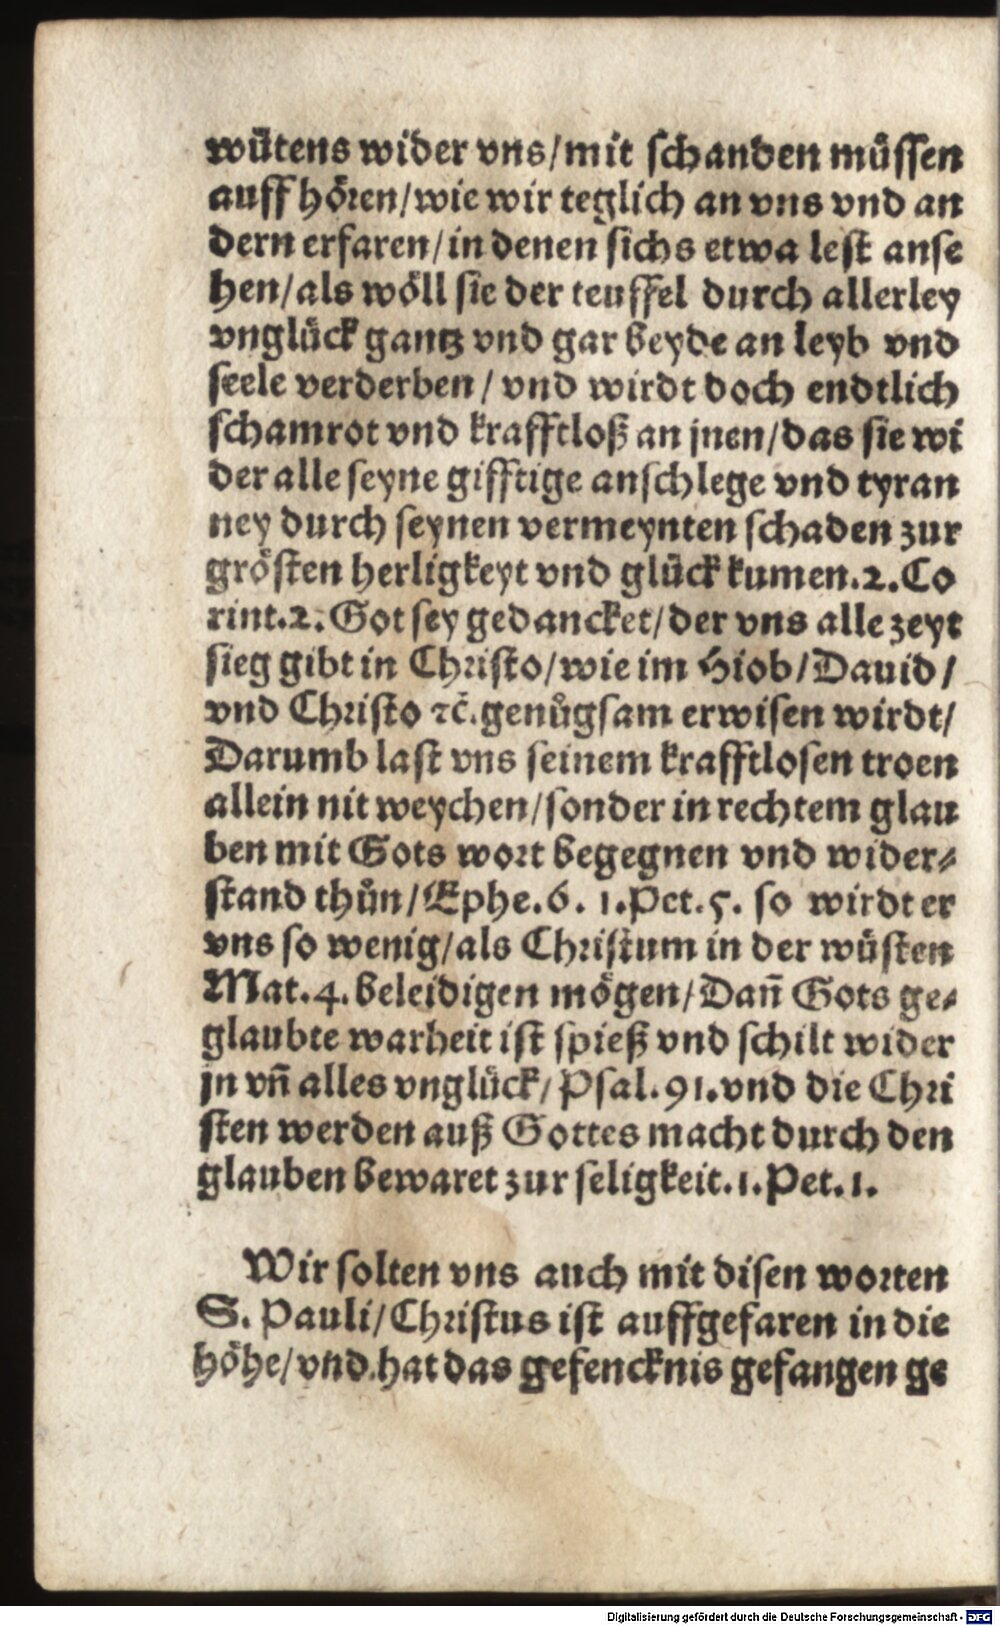 wütens wider vns/mit schanden müssen
auff hören/wie wir teglich an vns vnd an
dern erfaren/in denen sichs etwa lest anse
hen/als wöll sie der teuffel durch allerley
vnglück gantz vnd gar beyde an leyb vnd
seele verderben/vnd wirdt doch endtlich
schamrot vnd krafftloß an jnen/das sie wi
der alle seyne gifftige anschlege vnd tyran
ney durch seynen vermeynten schaden zur
grösten herligkeyt vnd glück kumen.2.Co
rint.2. Got sey gedancket/der vns alle zeyt
sieg gibt in Christo/wie im Hiob/Dauid/
vnd Christo ⁊c̃.genůgsam erwisen wirdt/
Darumb last vns seinem krafftlosen troen
allein nit weychen/sonder in rechtem glau
ben mit Gots wort begegnen vnd wider⸗
stand thůn/Ephe.6. 1.Pet.5. so wirdt er
vns so wenig/als Christum in der wüsten
Mat.4. beleidigen mögen/Dan̄ Gots ge⸗
glaubte warheit ist spieß vnd schilt wider
jn vn̄ alles vnglück/Psal.91.vnd die Chri
sten werden auß Gottes macht durch den
glauben bewaret zur seligkeit.1.Pet.1.
Wir solten vns auch mit disen worten
S. Pauli/Christus ist auffgefaren in die
höhe/vnd hat das gefencknis gefangen ge
Digitalisierung gefördert durch die Deutsche Forschungsgemeinschaft - DFG